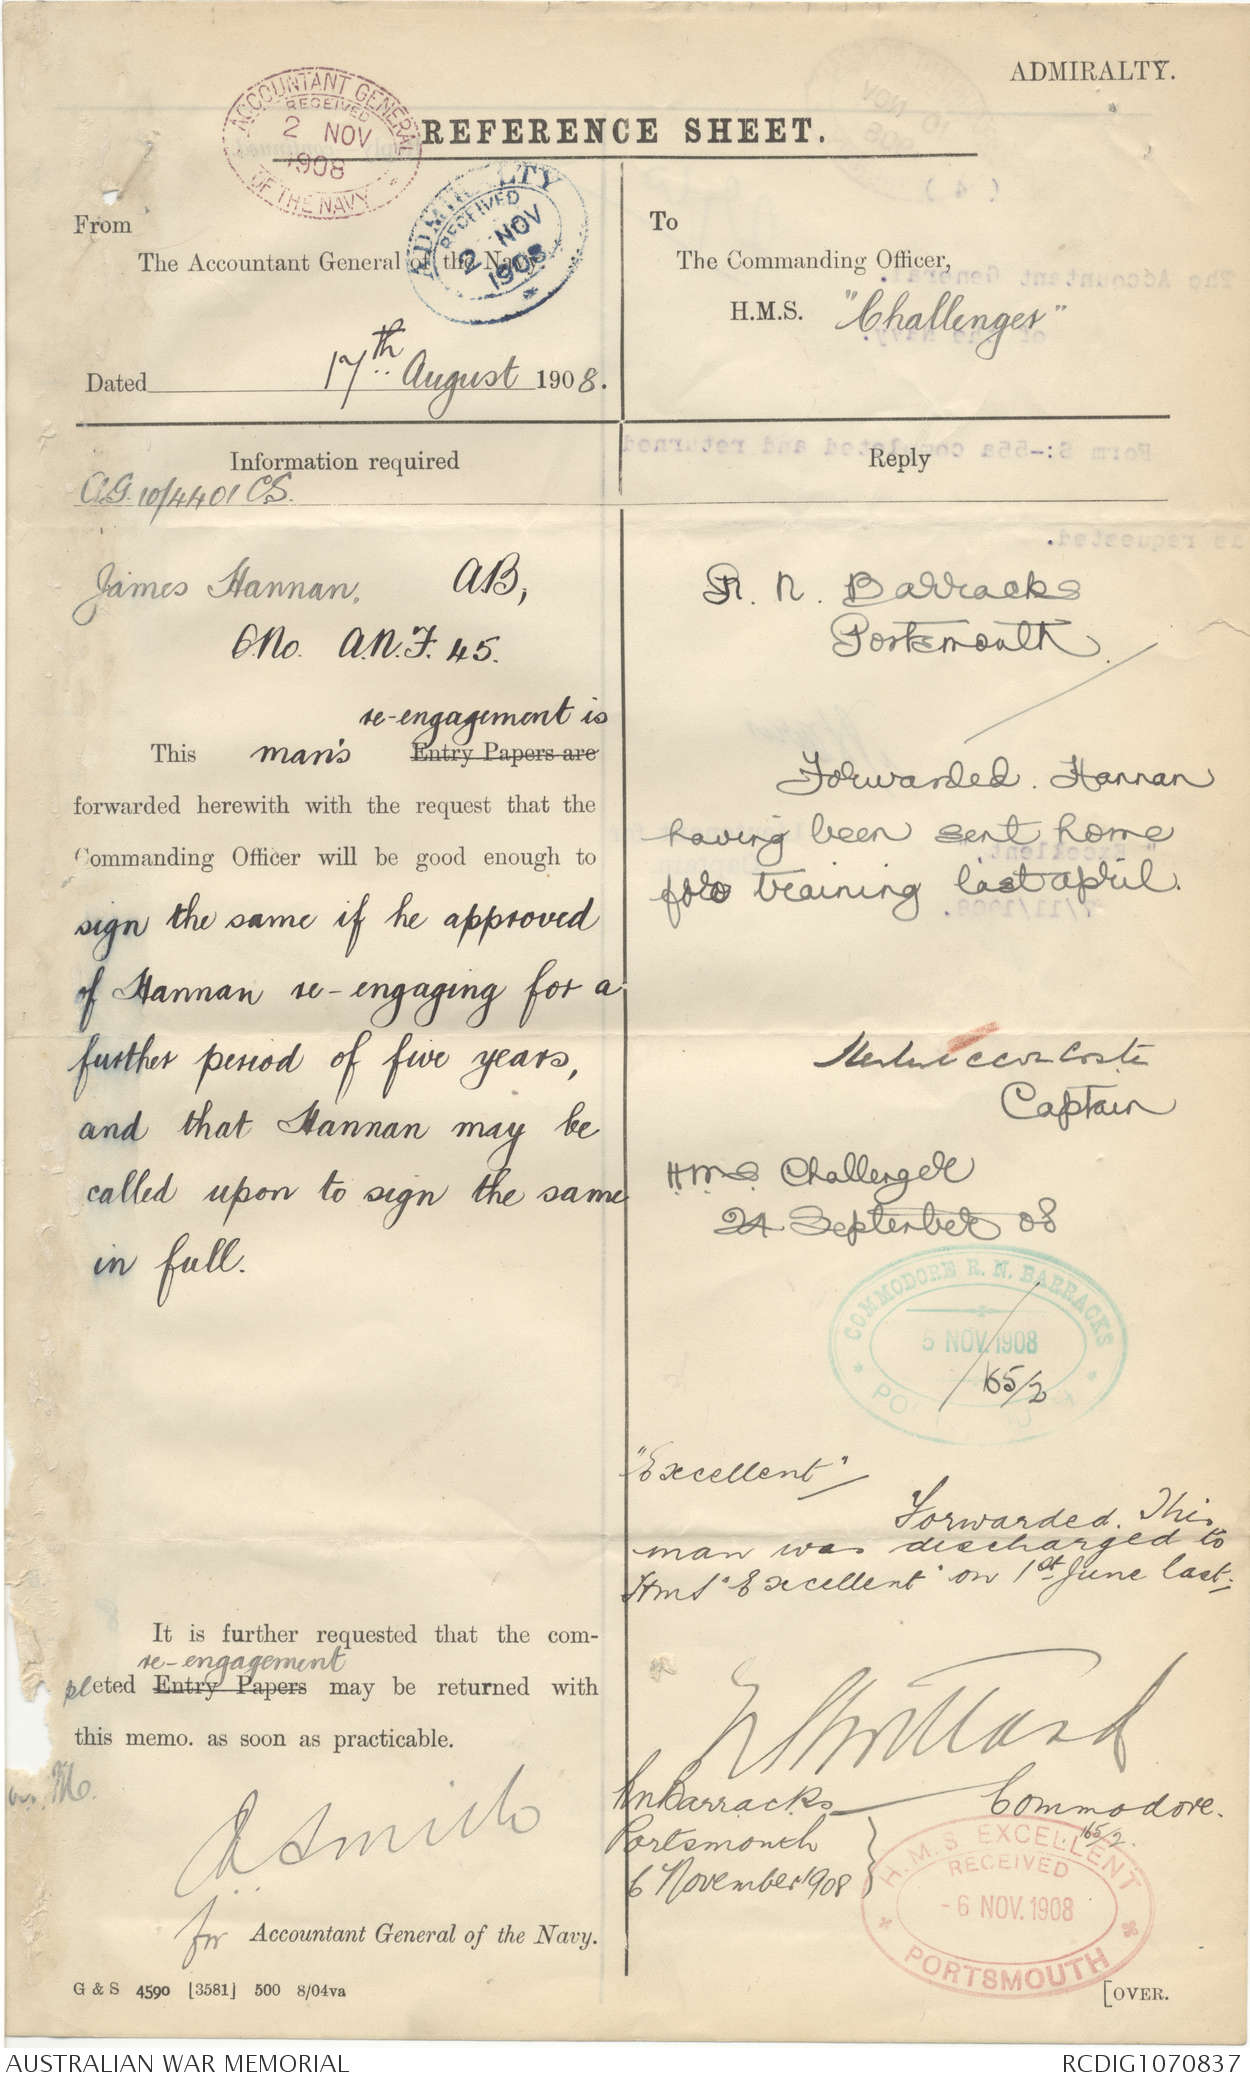 ADMIRALTY.
REFERENCE SHEET.
ACCOUNTANT GENERAL
RECEIVED
2 NOV
1908
OF THE NAVY
ADMIRALTY
RECEIVED
2 NOV
1908
From
The Accountant General of the Navy
Dated 17th August 1908.
To
The Commanding Officer,
H.M.S. "Challenger"
Information required
C.G. 10/4401 CS.
James Hannan, AB,
O.No. A.N.F. 45.
re-engagement is
This man's Entry Papers are
forwarded herewith with the request that the
Commanding Officer will be good enough to
sign the same if he approved
of Hannan re-engaging for a
further period of five years,
and that Hannan may be
called upon to sign the same
in full.
It is further requested that the com-
re-engagement
pleted Entry Papers may be returned with
this memo. as soon as practicable.
for Accountant General of the Navy.
G & S 4590 [3581] 500 8/04va
Reply
R. N. Barracks
Portsmouth.
Forwarded. Hannan
having been sent home
for training last april.
Captain
H.M.S. Challenger
24 September 08
COMMODORE R. N. BARRACKS
5 NOV. 1908
165/2
"Excellent"
Forwarded. This
man was discharged to
HMS "Excellent" on 1st June last.
RN Barracks Commodore.
Portsmouth 165/2.
6 November 1908
H.M.S EXCELLENT
RECEIVED
- 6 NOV. 1908
PORTSMOUTH
[OVER.
AUSTRALIAN WAR MEMORIAL
RCDIG1070837